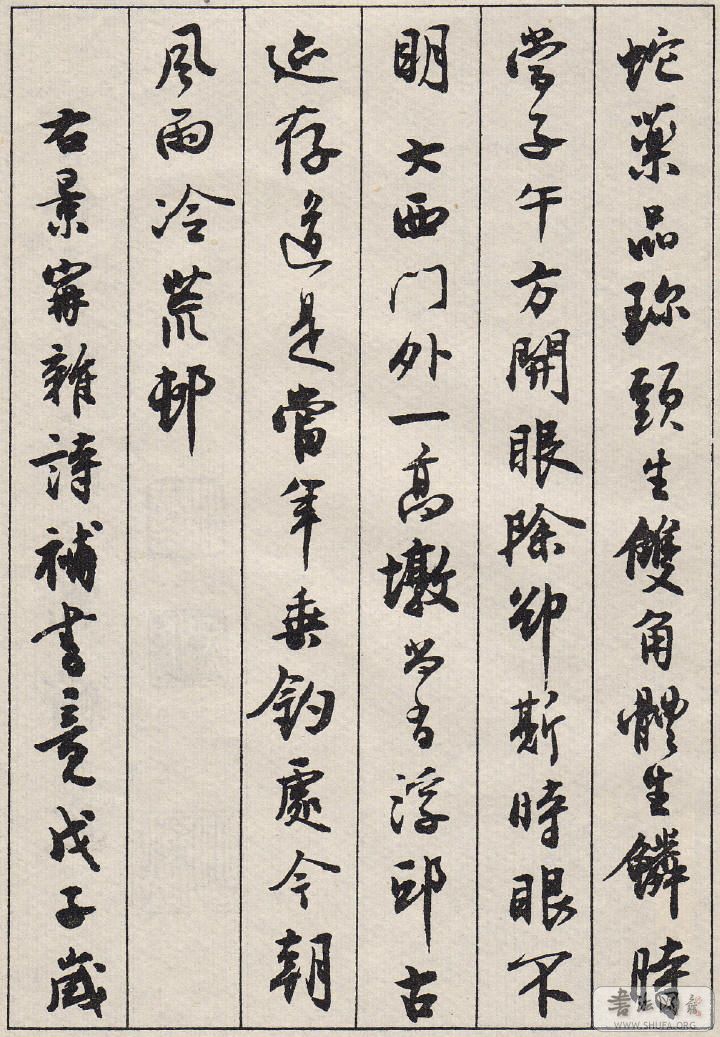 蛇藥品珎頭生雙角體生鱗時
當子午方開眼除卻斯時眼不
明 大西門外一高墩尚有浮邱古
迹存道是當年垂釣處今朝
風雨冷荒邨
右景甯雜詩補書竟戊子歲
書法网
WWW.SHUFA.ORG